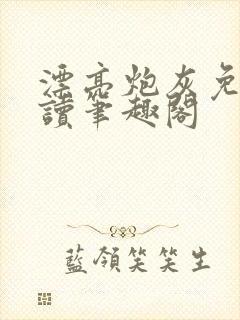 漂亮炮灰免
讀筆趣閣
藍領笑笑生